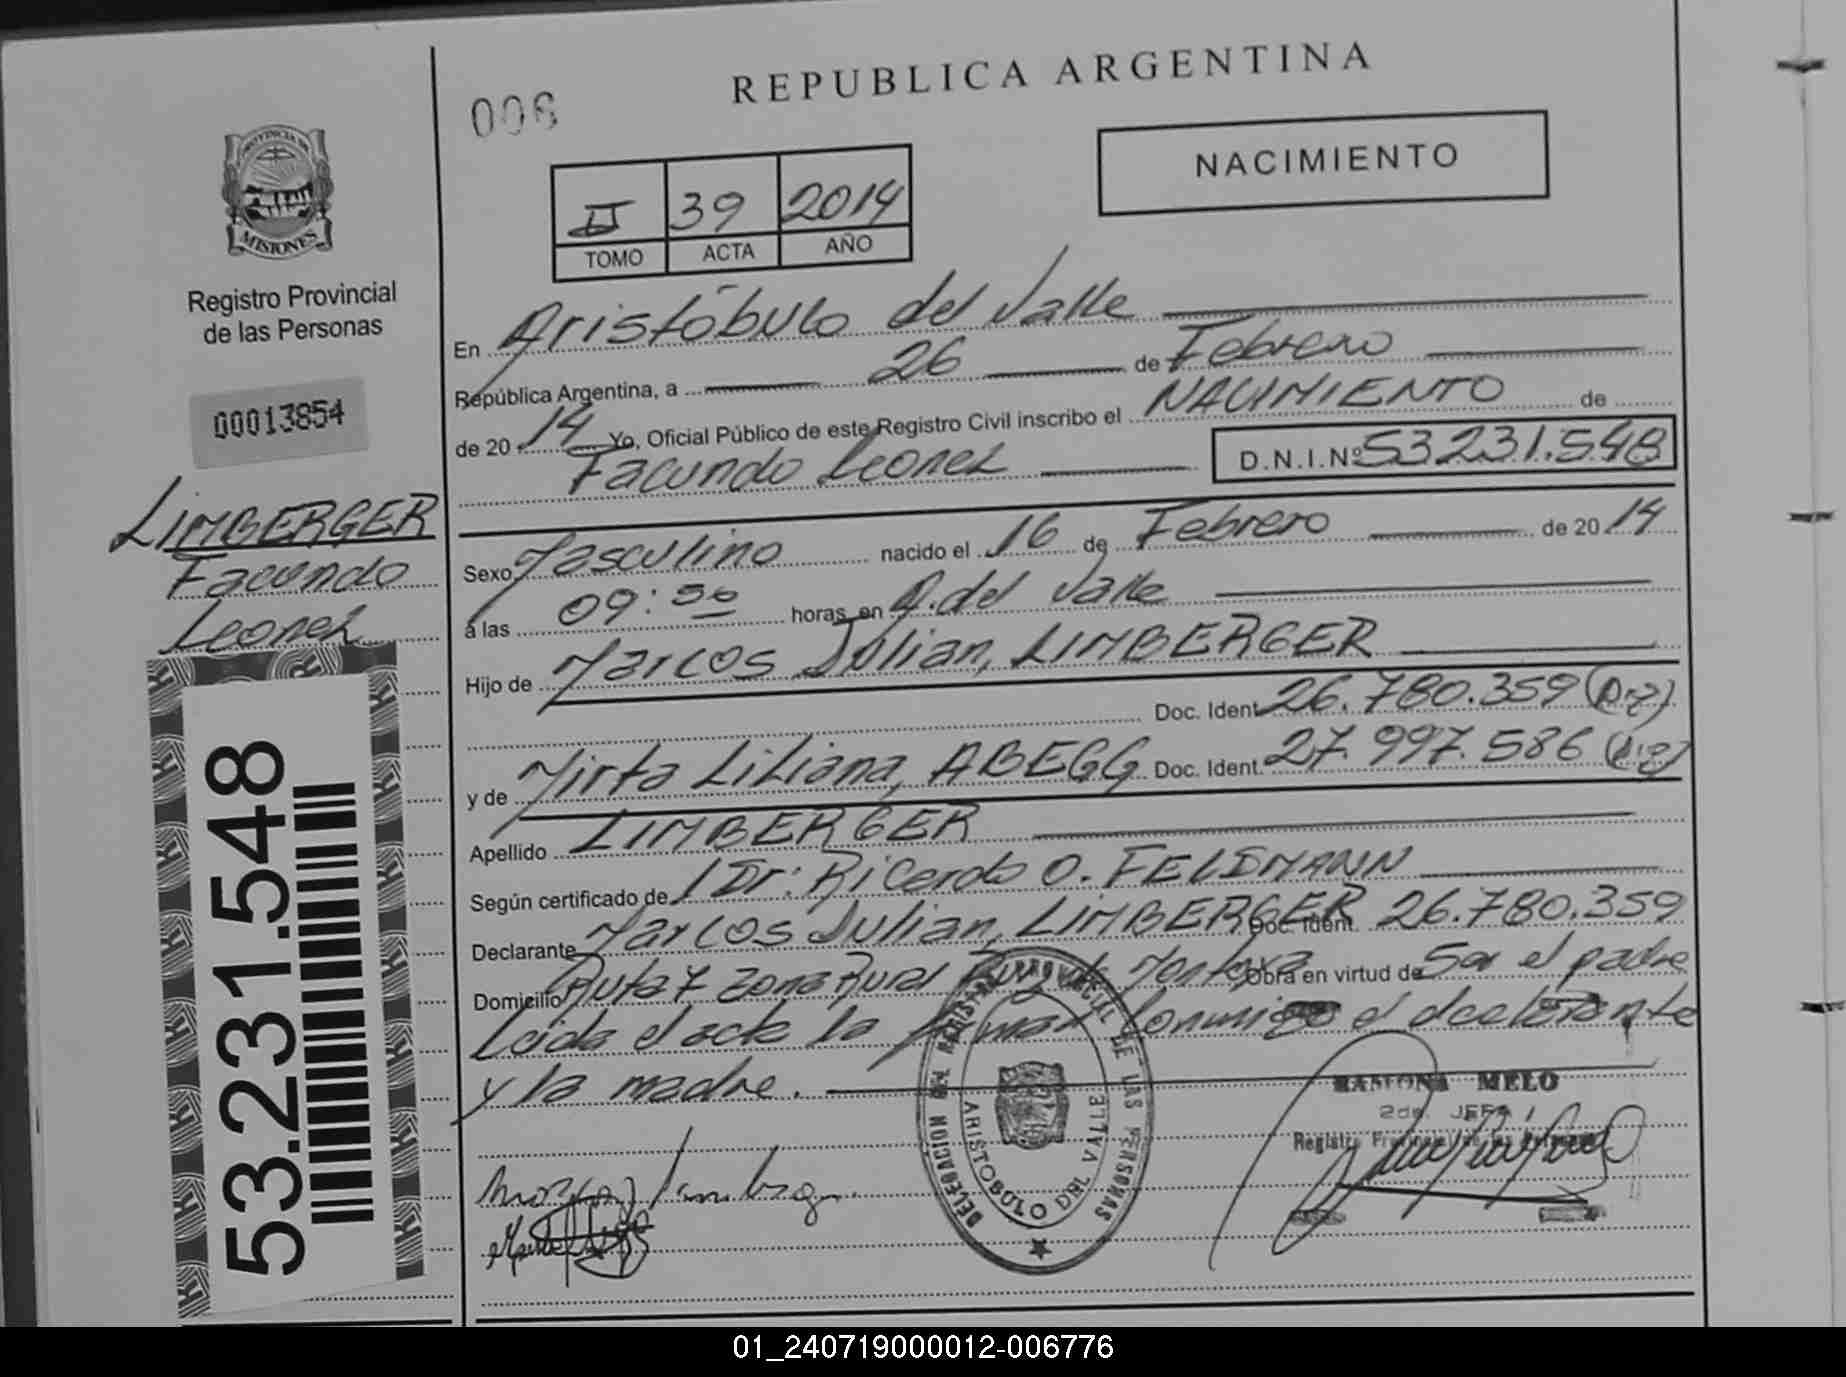 006
REPUBLICA ARGENTINA
NACIMIENTO
II 39 2014
TOMO ACTA AÑO
PROVINCIA DE
MISIONES
Registro Provincial
de las Personas
00013854
LIMBERGER
Facundo
Leonel
53.231.548
En Aristóbulo del Valle
República Argentina, a 26 de Febrero
de 20 14 Yo, Oficial Público de este Registro Civil inscribo el NACIMIENTO de
Facundo Leonel D.N.I.Nº 53231.548
Sexo Masculino nacido el 16 de Febrero de 20 14
a las 09:50 horas, en A. del Valle
Hijo de Marcos Julian, LIMBERGER
Doc. Ident. 26.780.359 (Arg)
y de Mirta Liliana, ABEGG Doc. Ident. 27.997.586 (Arg)
Apellido LIMBERGER
Según certificado de / Dr: Ricardo O. FELDMANN
Declarante Marcos Julian, LIMBERGER Doc. Ident. 26.780.359
Domicilio Ruta 7 zona Rural Montoya Obra en virtud de Ser el padre
Leida el acta la firman conmigo el declarante
y la madre.
DELEGACION DEL REGISTRO PROVINCIAL DE LAS PERSONAS
ARISTOBULO DEL VALLE
RAMONA MELO
2da. JEFA
Registro Provincial de las Personas
01_240719000012-006776